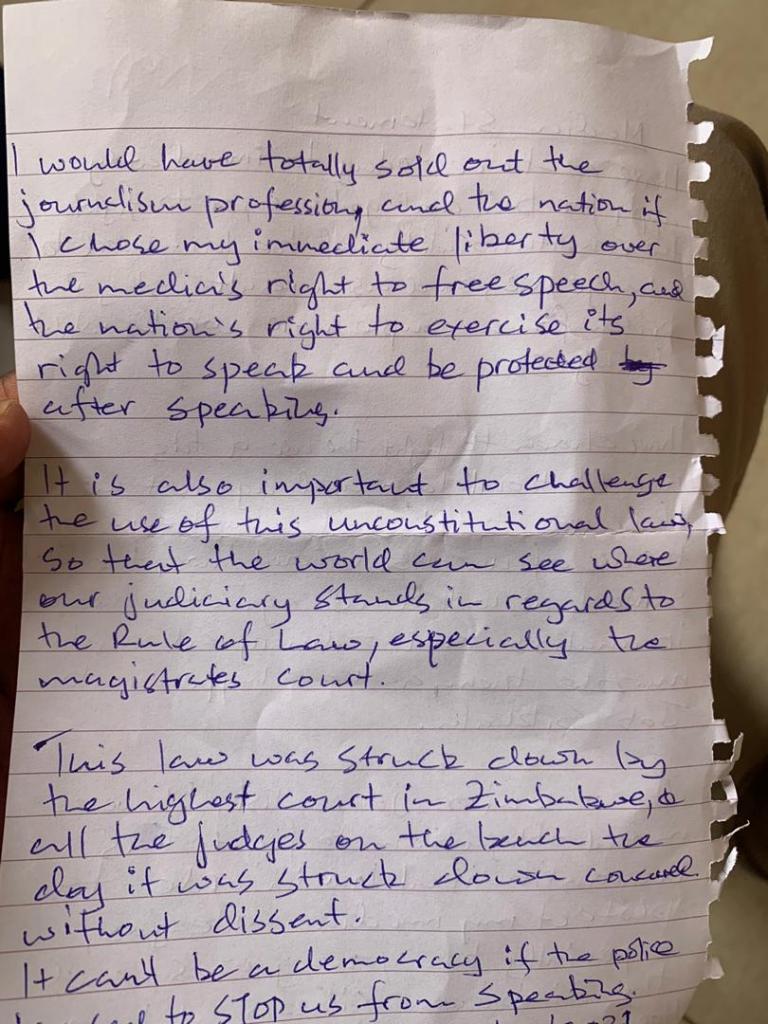 I would have totally sold out the
journalism profession, and the nation if
I chose my immediate liberty over
the media's right to free speech, and
the nation's right to exercise its
right to speak and be protected
after speaking.
It is also important to challenge
the use of this unconstitutional law,
so that the world can see where
our judiciary stands in regards to
the Rule of Law, especially the
magistrates court.
This law was struck down by
the highest court in Zimbabwe, &
all the judges on the bench the
day it was struck down concured
without dissent.
It can't be a democracy if the police
to STOP us from speaking.